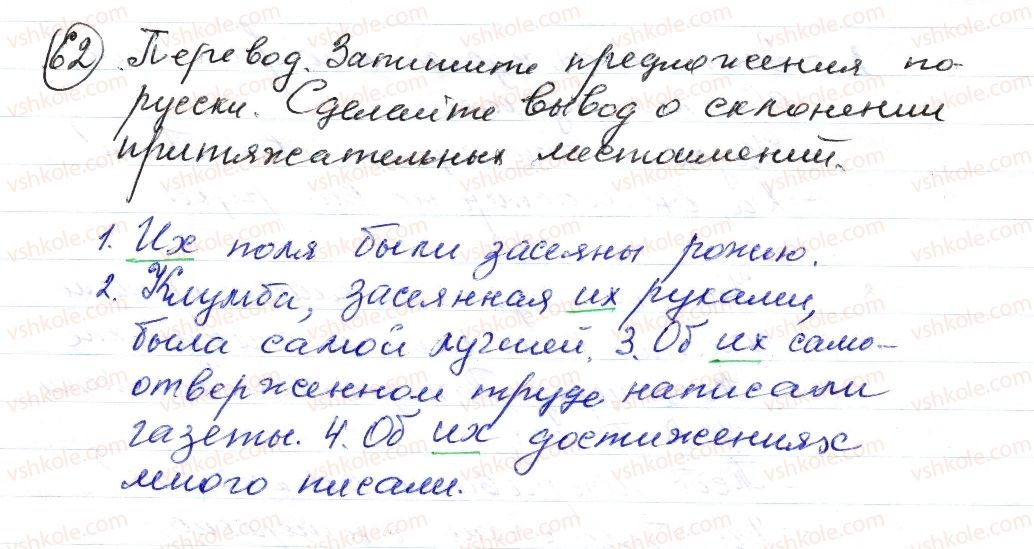 62 Перевод. Запишите предложения по-
русски. Сделайте вывод о склонении
притяжательных местоимений.
1. Их поля были засеяны рожью.
2. Клумба, засеянная их руками,
была самой лучшей. 3. Об их само-
отверженном труде написали
газеты. 4. Об их достижениях
много писали.